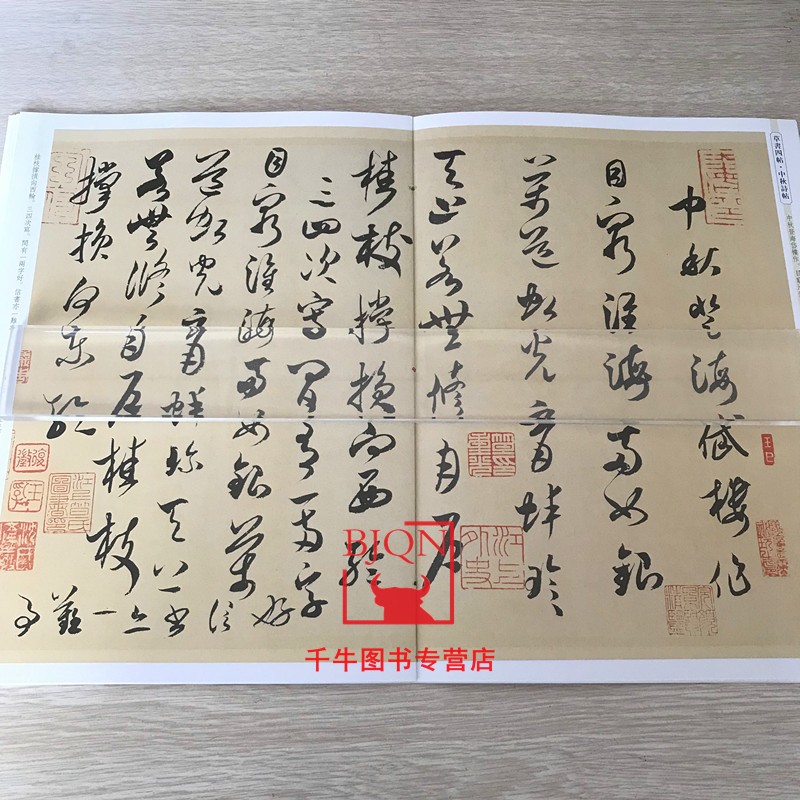 草書四帖·中秋詩帖
中秋登海岱樓作
中秋登海岱樓作
目窮淮海兩如銀
萬道虹光育蚌珍
天上若無修月戶
桂枝撐損向西輪
三四次寫間有一兩字
好信書亦一難事
目窮淮海兩如銀萬
道虹光育蚌珍天上
若無修月戶桂枝
撐損向東輪
桂枝撐損向西輪。三四次寫，間有一兩字好，信書亦一難
BJQN
千牛图书专营店